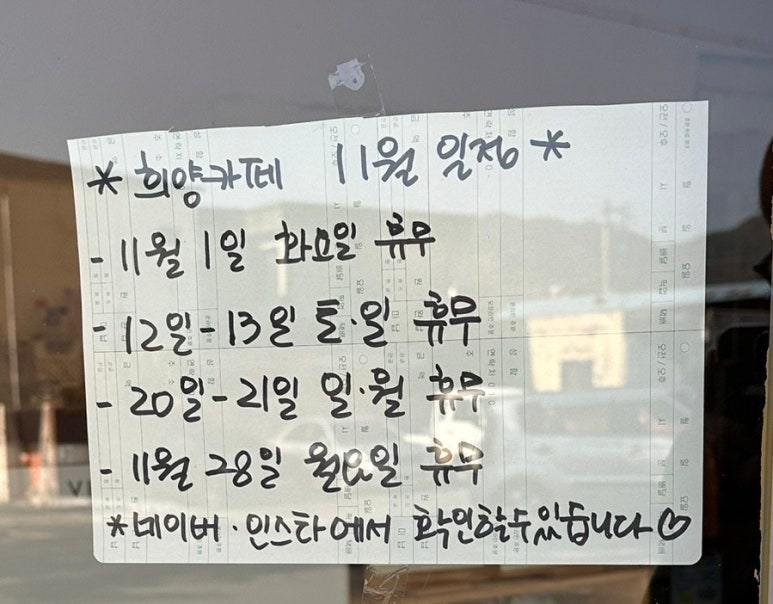 * 희양카페 11월 일정 *
- 11월 1일 화요일 휴무
- 12일-13일 토·일 휴무
- 20일-21일 일·월 휴무
- 11월 28일 월요일 휴무
* 네이버·인스타에서 확인할수있습니다♡